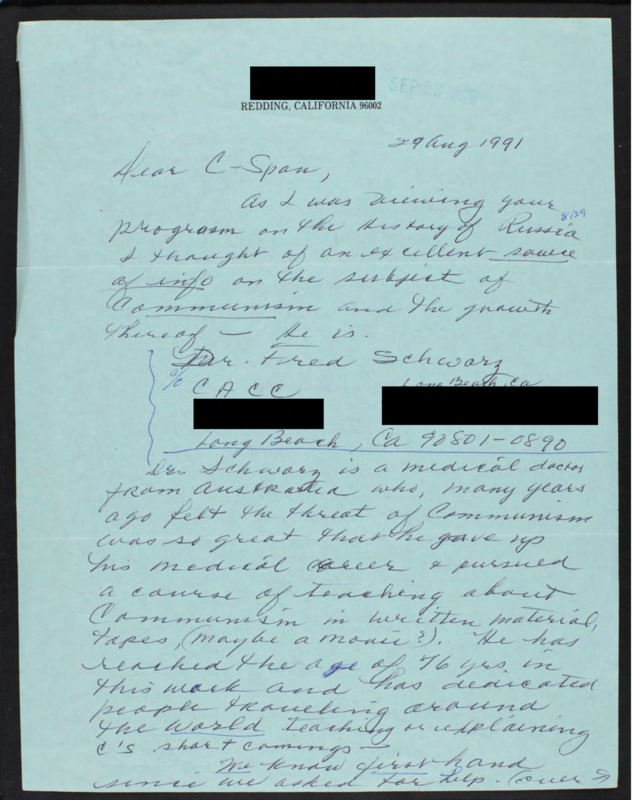 REDDING, CALIFORNIA 96002
29 Aug 1991
Dear C-Span,
As I was viewing your
8/29
program on the History of Russia
I thought of an excellent source
of info on the subject of
Communism and the growth
thereof — He is.
Dr. Fred Schwarz
% CACC Long Beach, Ca
Long Beach, Ca 90801-0890
Dr. Schwarz is a medical doctor
from Australia who, many years
ago felt the threat of Communism
was so great that he gave up
his medical career & pursued
a course of teaching about
Communism in written material,
tapes, (maybe a movie?). He has
reached the age of 76 yrs in
this work and has dedicated
people traveling around
the world teaching or explaining
C's short comings —
We know first hand
since we asked for help. (over